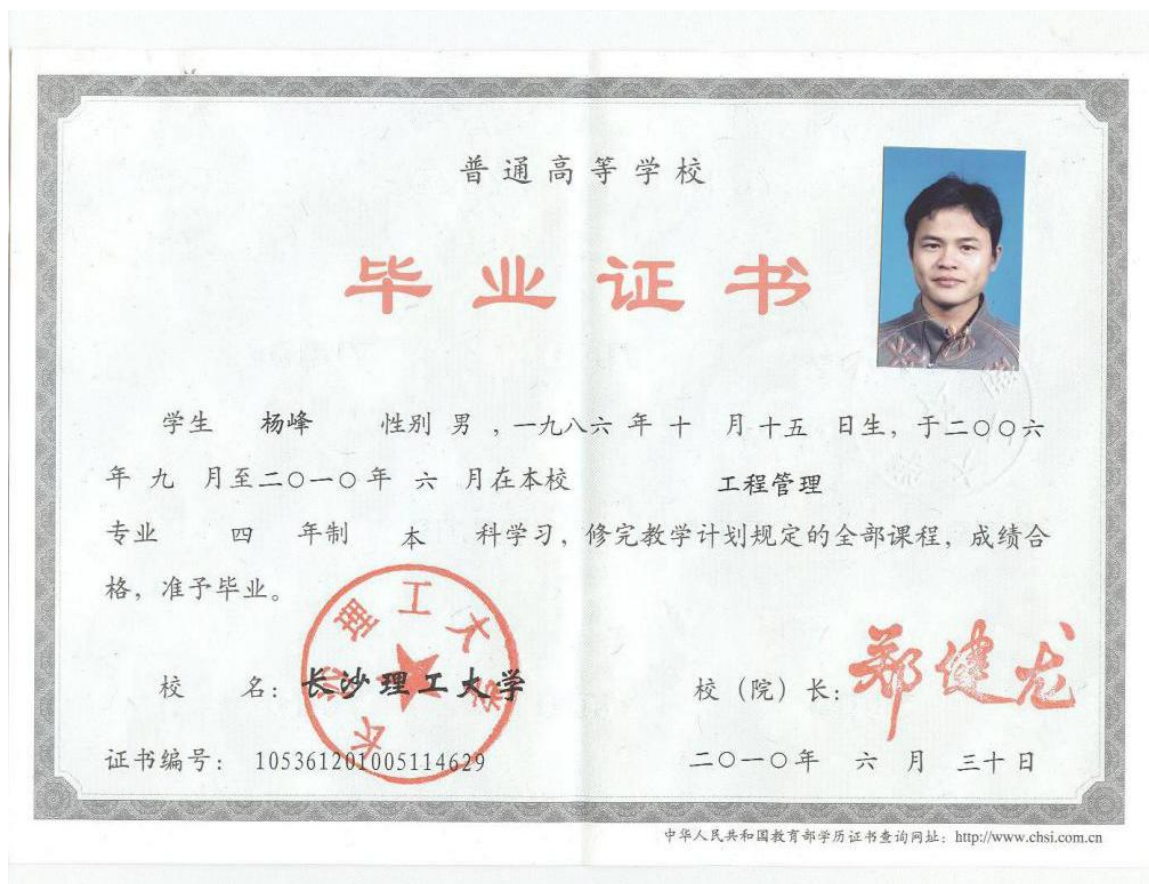 普通高等学校
毕业证书
学生 杨峰 性别 男 ，一九八六 年 十 月 十五 日生，于二〇〇六
年 九 月至二〇一〇年 六 月在本校 工程管理
专业 四 年制 本 科学习，修完教学计划规定的全部课程，成绩合
格，准予毕业。
校 名：长沙理工大学
长沙理工大学
校（院）长：郑健龙
证书编号： 105361201005114629
二〇一〇年 六 月 三十 日
中华人民共和国教育部学历证书查询网址：http://www.chsi.com.cn